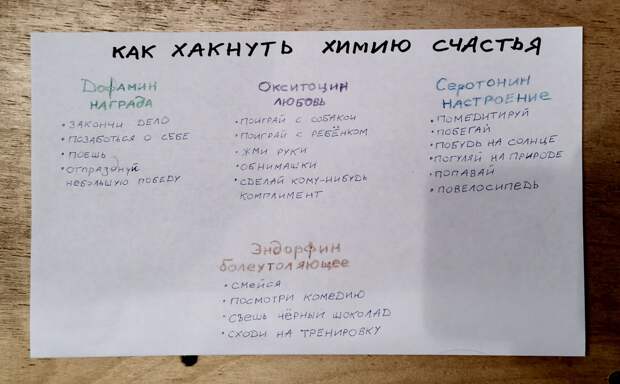 КАК ХАКНУТЬ ХИМИЮ СЧАСТЬЯ
Дофамин
НАГРАДА
• ЗАКОНЧИ ДЕЛО
• ПОЗАБОТЬСЯ О СЕБЕ
• ПОЕШЬ
• ОТПРАЗДНУЙ
НЕБОЛЬШУЮ ПОБЕДУ
Окситоцин
ЛЮБОВЬ
• ПОИГРАЙ С СОБАКОЙ
• ПОИГРАЙ С РЕБЁНКОМ
• ЖМИ РУКИ
• ОБНИМАШКИ
• СДЕЛАЙ КОМУ-НИБУДЬ
КОМПЛИМЕНТ
Серотонин
НАСТРОЕНИЕ
• ПОМЕДИТИРУЙ
• ПОБЕГАЙ
• ПОБУДЬ НА СОЛНЦЕ
• ПОГУЛЯЙ НА ПРИРОДЕ
• ПОПЛАВАЙ
• ПОВЕЛОСИПЕДЬ
Эндорфин
болеутоляющее
• СМЕЙСЯ
• ПОСМОТРИ КОМЕДИЮ
• СЪЕШЬ ЧЁРНЫЙ ШОКОЛАД
• СХОДИ НА ТРЕНИРОВКУ